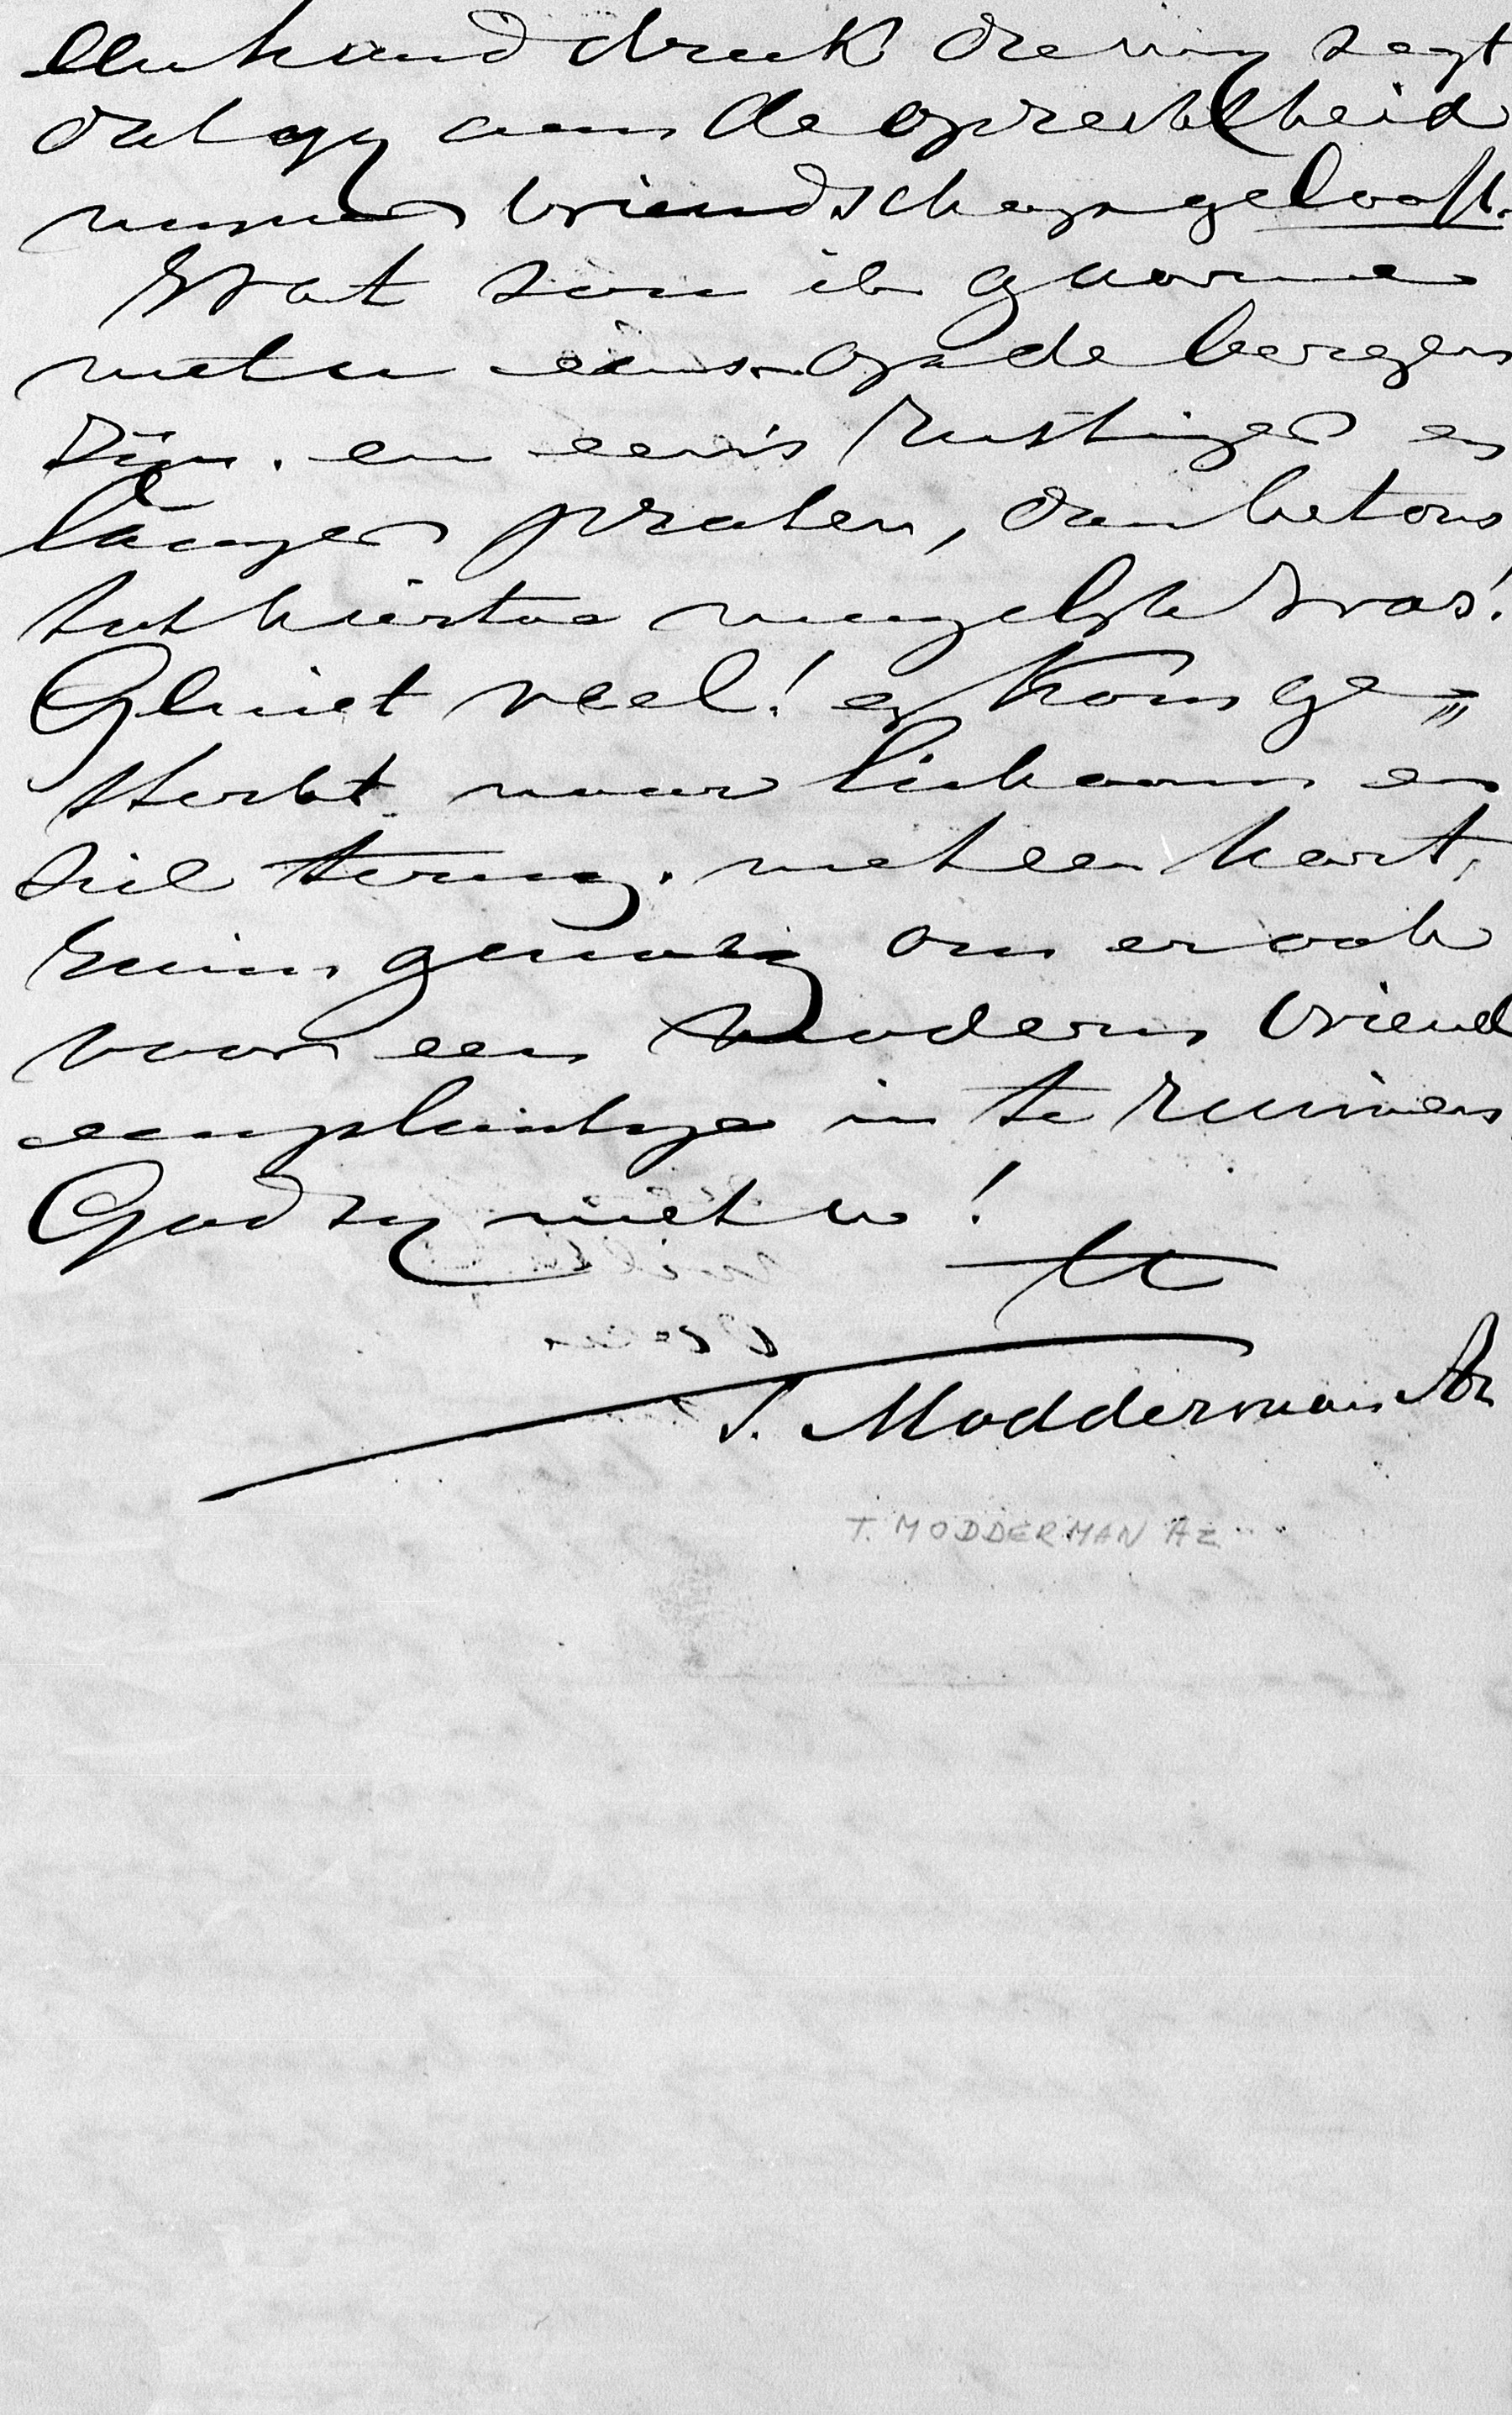 Een handdruk die my zegt
dat gy aan de oprechtheid
myner vriendschap gelooft.
Wat zou ik gaarne
met u eens op de bergen
zijn. en eens rustiger en
langer praten, dan het ons
tot hiertoe mogelyk was!
Geniet veel! en kom ge„
sterkt naar lichaam en
ziel terug. met een hart,
ruim genoeg om er ook
voor een modern vriend
een plaatsje in te ruimen
God zy met u!
tt
T. Modderman Az
T. MODDERMAN AZ